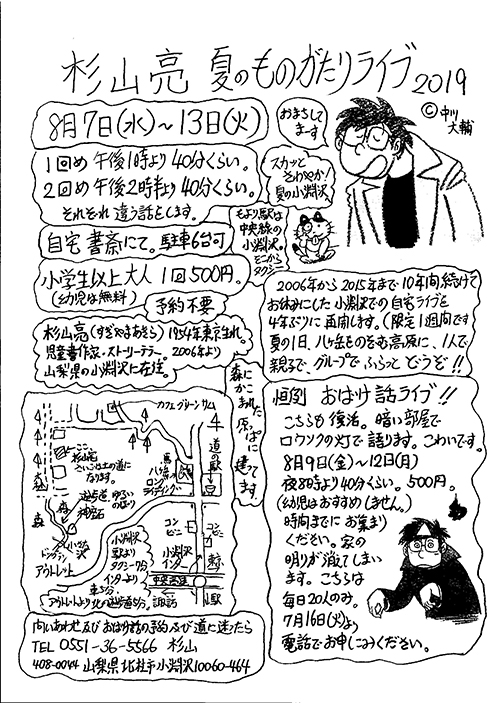 杉山亮 夏のものがたりライブ2019
©中川大輔
8月7日(水)～13日(火)
おまちしてます
1回め 午後1時より40分くらい。
2回め 午後2時半より40分くらい。
それぞれ違う話をします。
スカッとさわやか!
夏の小淵沢
自宅書斎にて。駐車6台可
もより駅は
中央線の
小淵沢。
そこから
タクシー
小学生以上大人 1回500円。
(幼児は無料)
予約不要
杉山亮(すぎやまあきら) 1954年東京生れ。
児童書作家・ストーリーテラー。2006年より
山梨県の小淵沢に在住。
2006年から2015年まで10年間続けて
お休みにした小淵沢での自宅ライブを
4年ぶりに再開します。(限定1週間です
夏の1日、八ヶ岳をのぞむ高原に、1人で
親子で、グループでふらっとどうぞ!!
森にかこまれた原っぱに建ってます。
カフェグリーンリム
4
道の駅
杉山宅
さいごは土の道に
なります。
馬
八ヶ岳
ロングライディング
遊歩道、ゆるい
のぼり
神田石
森
森
森
コンビニ
コンビニ
アウトレット
小淵沢
駅より
タクシー7分
インターより
車5分
小淵沢
インター
東京
中央高速
アウトレットより火の遊歩道5分。
諏訪
山駅
恒例 おばけ話ライブ!!
こちらも復活。暗い部屋で
ロウソクの灯で語ります。こわいです。
8月9日(金)～12日(月)
夜8時より40分くらい。500円。
(幼児はおすすめしません。)
時間までにお集まり
ください。家の
明りが消えてしまい
ます。こちらは
毎日20人のみ。
7月16日(火)より
電話でお申しこみください。
問いあわせ及びおばけ話の予約及び道に迷ったら
TEL 0551-36-5566 杉山
408-0044 山梨県北杜市小淵沢10060-464